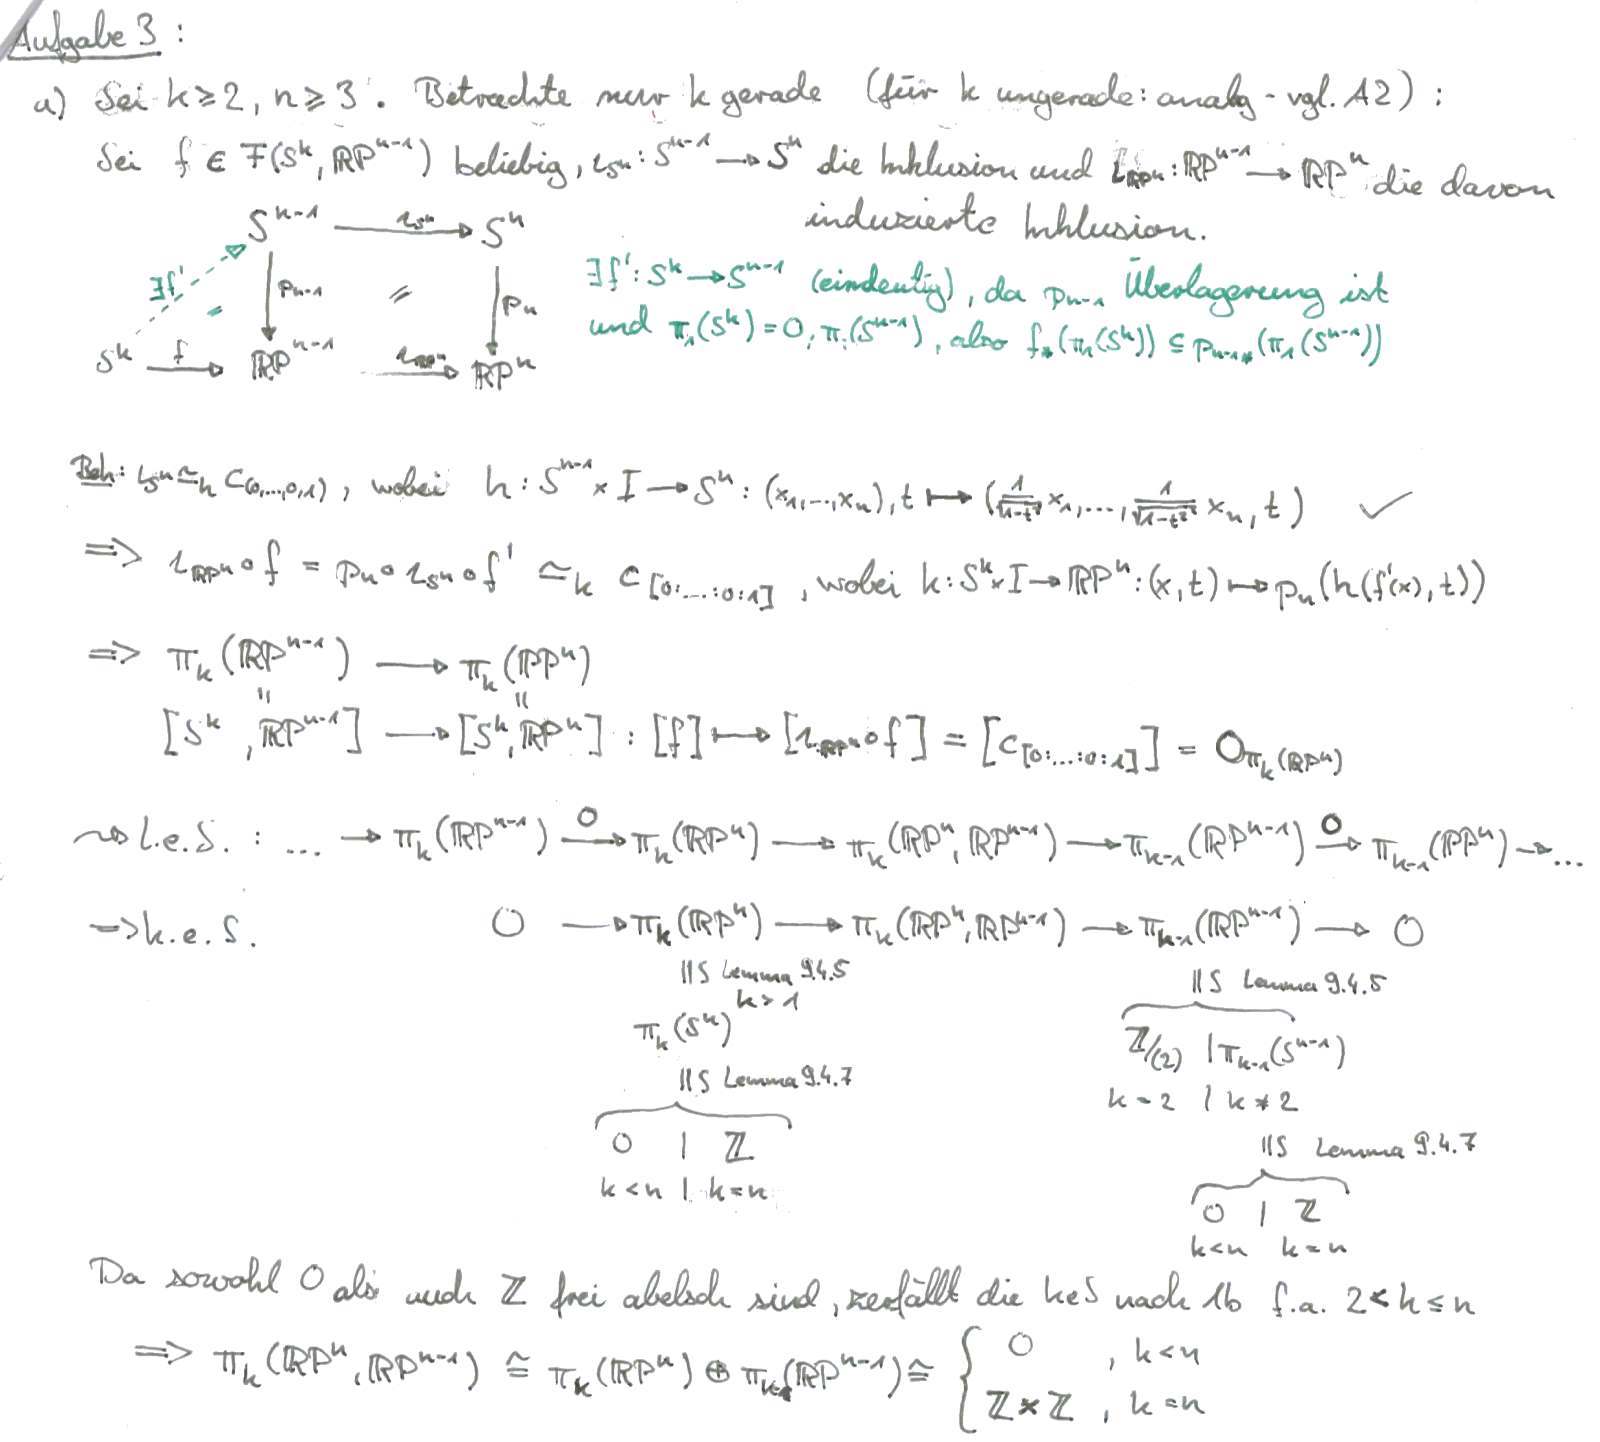 Aufgabe 3 :
a) Sei k ≥ 2, n ≥ 3 . Betrachte nur k gerade (für k ungerade: analog - vgl. A2) :
Sei f ∈ F(S^k, RP^{n-1}) beliebig, ι_{S^n} : S^{n-1} → S^n die Inklusion und ι_{RP^n} : RP^{n-1} → RP^n die davon
induzierte Inklusion.
S^{n-1} —ι_{S^n}→ S^n
∃f' p_{n-1} = p_n
S^k —f→ RP^{n-1} —ι_{RP^n}→ RP^n
∃f' : S^k → S^{n-1} (eindeutig), da p_{n-1} Überlagerung ist
und π_1(S^k) = 0, π_1(S^{n-1}), also f_*(π_1(S^k)) ⊆ p_{n-1*}(π_1(S^{n-1}))
Beh: ι_{S^n} ≃_h C_{(0,...,0,1)} , wobei h : S^{n-1} × I → S^n : (x_1,...,x_n), t ↦ (1/√(1-t²) x_1, ..., 1/√(1-t²) x_n, t) ✓
⇒ ι_{RP^n} ∘ f = p_n ∘ ι_{S^n} ∘ f' ≃_k C_{[0:...:0:1]} , wobei k : S^k × I → RP^n : (x,t) ↦ p_n(h(f'(x), t))
⇒ π_k(RP^{n-1}) → π_k(RP^n)
[S^k , RP^{n-1}] → [S^k, RP^n] : [f] ↦ [ι_{RP^n} ∘ f] = [C_{[0:...:0:1]}] = 0_{π_k(RP^n)}
⇝ l.e.S. : ... → π_k(RP^{n-1}) —0→ π_k(RP^n) → π_k(RP^n, RP^{n-1}) → π_{k-1}(RP^{n-1}) —0→ π_{k-1}(RP^n) → ...
⇒ k.e.S. 0 → π_k(RP^n) → π_k(RP^n, RP^{n-1}) → π_{k-1}(RP^{n-1}) → 0
||S Lemma 9.4.5 ||S Lemma 9.4.5
k > 1
π_k(S^n) Z/(2) | π_{k-1}(S^{n-1})
||S Lemma 9.4.7 k = 2 | k ≠ 2
0 | Z ||S Lemma 9.4.7
k < n | k = n 0 | Z
k < n k = n
Da sowohl 0 als auch Z frei abelsch sind, zerfällt die keS nach 1b f.a. 2 < k ≤ n
⇒ π_k(RP^n, RP^{n-1}) ≅ π_k(RP^n) ⊕ π_{k-1}(RP^{n-1}) ≅ { 0 , k < n
Z × Z , k = n